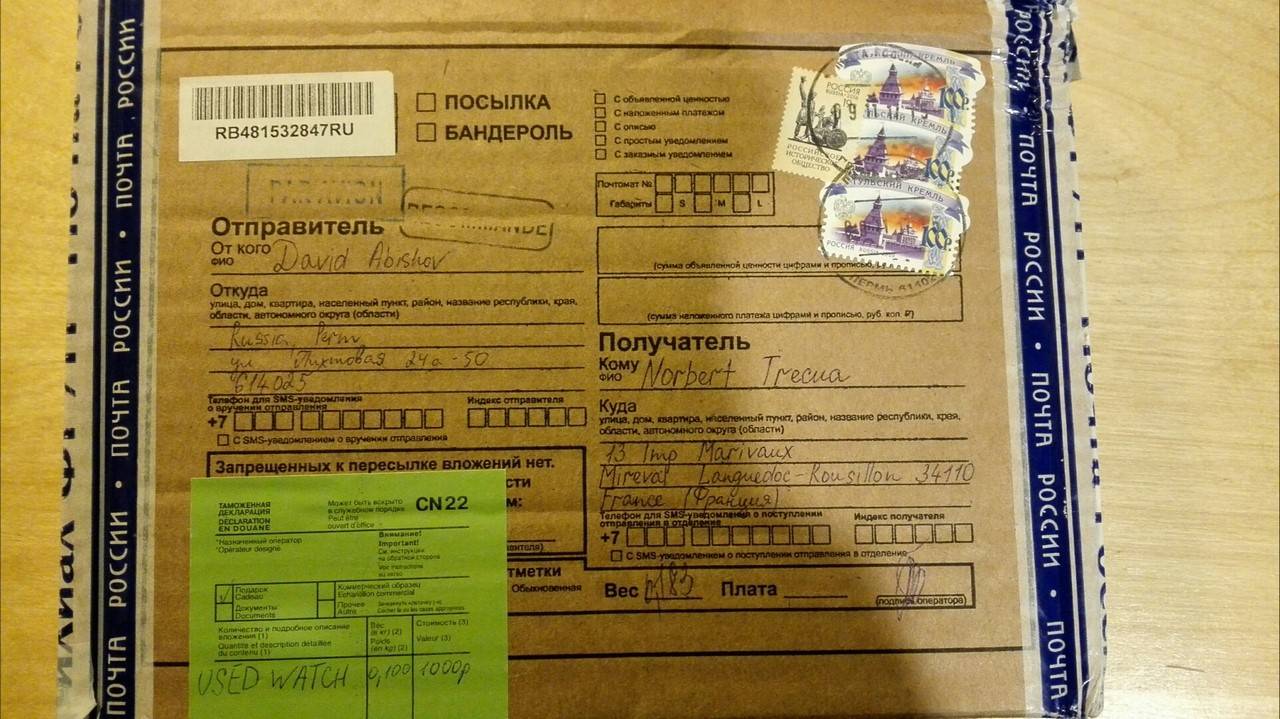 ПОЧТА РОССИИ • ПОЧТА РОССИИ • ПОЧТА РОССИИ
RB481532847RU
ПОСЫЛКА
БАНДЕРОЛЬ
С объявленной ценностью
С наложенным платежом
С описью
С простым уведомлением
С заказным уведомлением
РОССИЯ
РОССИЙСКОЕ
ИСТОРИЧЕСКОЕ
ОБЩЕСТВО
КРЕМЛЬ
100р
КРЕМЛЬ
100р
ТУЛЬСКИЙ КРЕМЛЬ
100р
РОССИЯ
ПЕРМЬ
Почтомат №
Габариты S M L
PAR AVION
Отправитель
От кого
ФИО
David Abishov
Откуда
улица, дом, квартира, населенный пункт, район, название республики, края,
области, автономного округа (области)
Russia, Perm
ул Пихтовая 24а-50
614025
Телефон для SMS-уведомления
о вручении отправления
Индекс отправителя
+7
С SMS-уведомлением о вручении отправления
(сумма объявленной ценности цифрами и прописью,
(сумма наложенного платежа цифрами и прописью, руб. коп. ₽)
Получатель
Кому
ФИО
Norbert Trecua
Куда
улица, дом, квартира, населенный пункт, район, название республики, края,
области, автономного округа (области)
13 Imp Marivaux
Mireval Languedoc-Rousillon 34110
France (Франция)
Телефон для SMS-уведомления о поступлении
отправления в отделение
Индекс получателя
+7
С SMS-уведомлением о поступлении отправления в отделение
Запрещенных к пересылке вложений нет.
сти
м:
тметки
Обыкновенная
Вес
Плата
(подпись оператора)
ТАМОЖЕННАЯ
ДЕКЛАРАЦИЯ
DÉCLARATION
EN DOUANE
Может быть вскрыто
в служебном порядке
Peut être
ouvert d'office
CN22
*Назначенный оператор
*Opérateur désigné
Внимание!
Important!
См. инструкции
на обратной стороне
Voir instructions
au verso
Подарок
Cadeau
Коммерческий образец
Echantillon commercial
Документы
Documents
Прочее
Autre
Количество и подробное описание
вложения (1)
Quantité et description détaillée
du contenu (1)
Вес
(в кг) (2)
Poids
(en kg) (2)
Стоимость (3)
Valeur (3)
USED WATCH 0,100 1000р
ПОЧТА РОССИИ • ПОЧТА РОССИИ • ПОЧТА РОССИИ